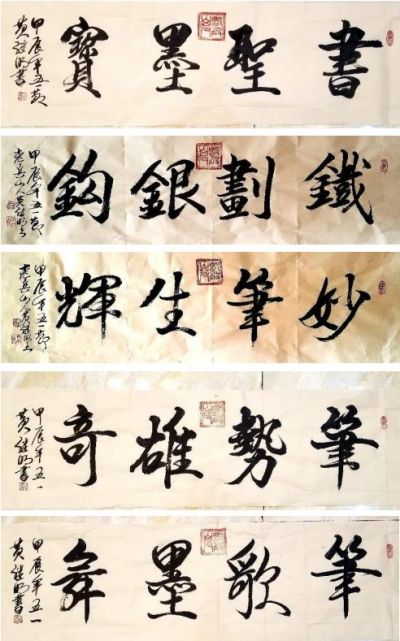 書聖墨寶
甲辰年五一節
黄继明書
鐵劃銀鈎
甲辰年五一節
妙筆生輝
甲辰年五一節
筆勢雄奇
甲辰年五一
黄继明書
筆歌墨舞
甲辰年五一
黄继明書